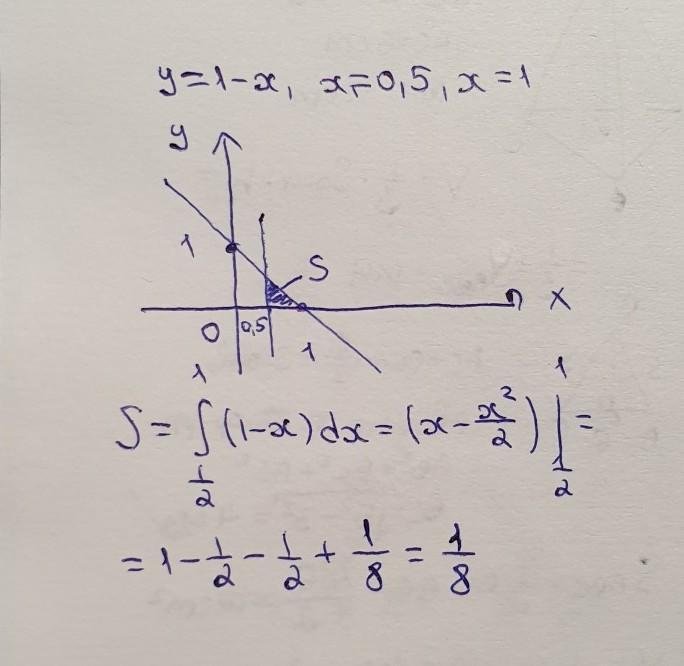 y=1-x, x=0,5, x=1
y
1
S
0
0,5
1
x
S = ∫₁/₂¹ (1-x)dx = (x - x²/2) |₁/₂¹ =
= 1 - 1/2 - 1/2 + 1/8 = 1/8